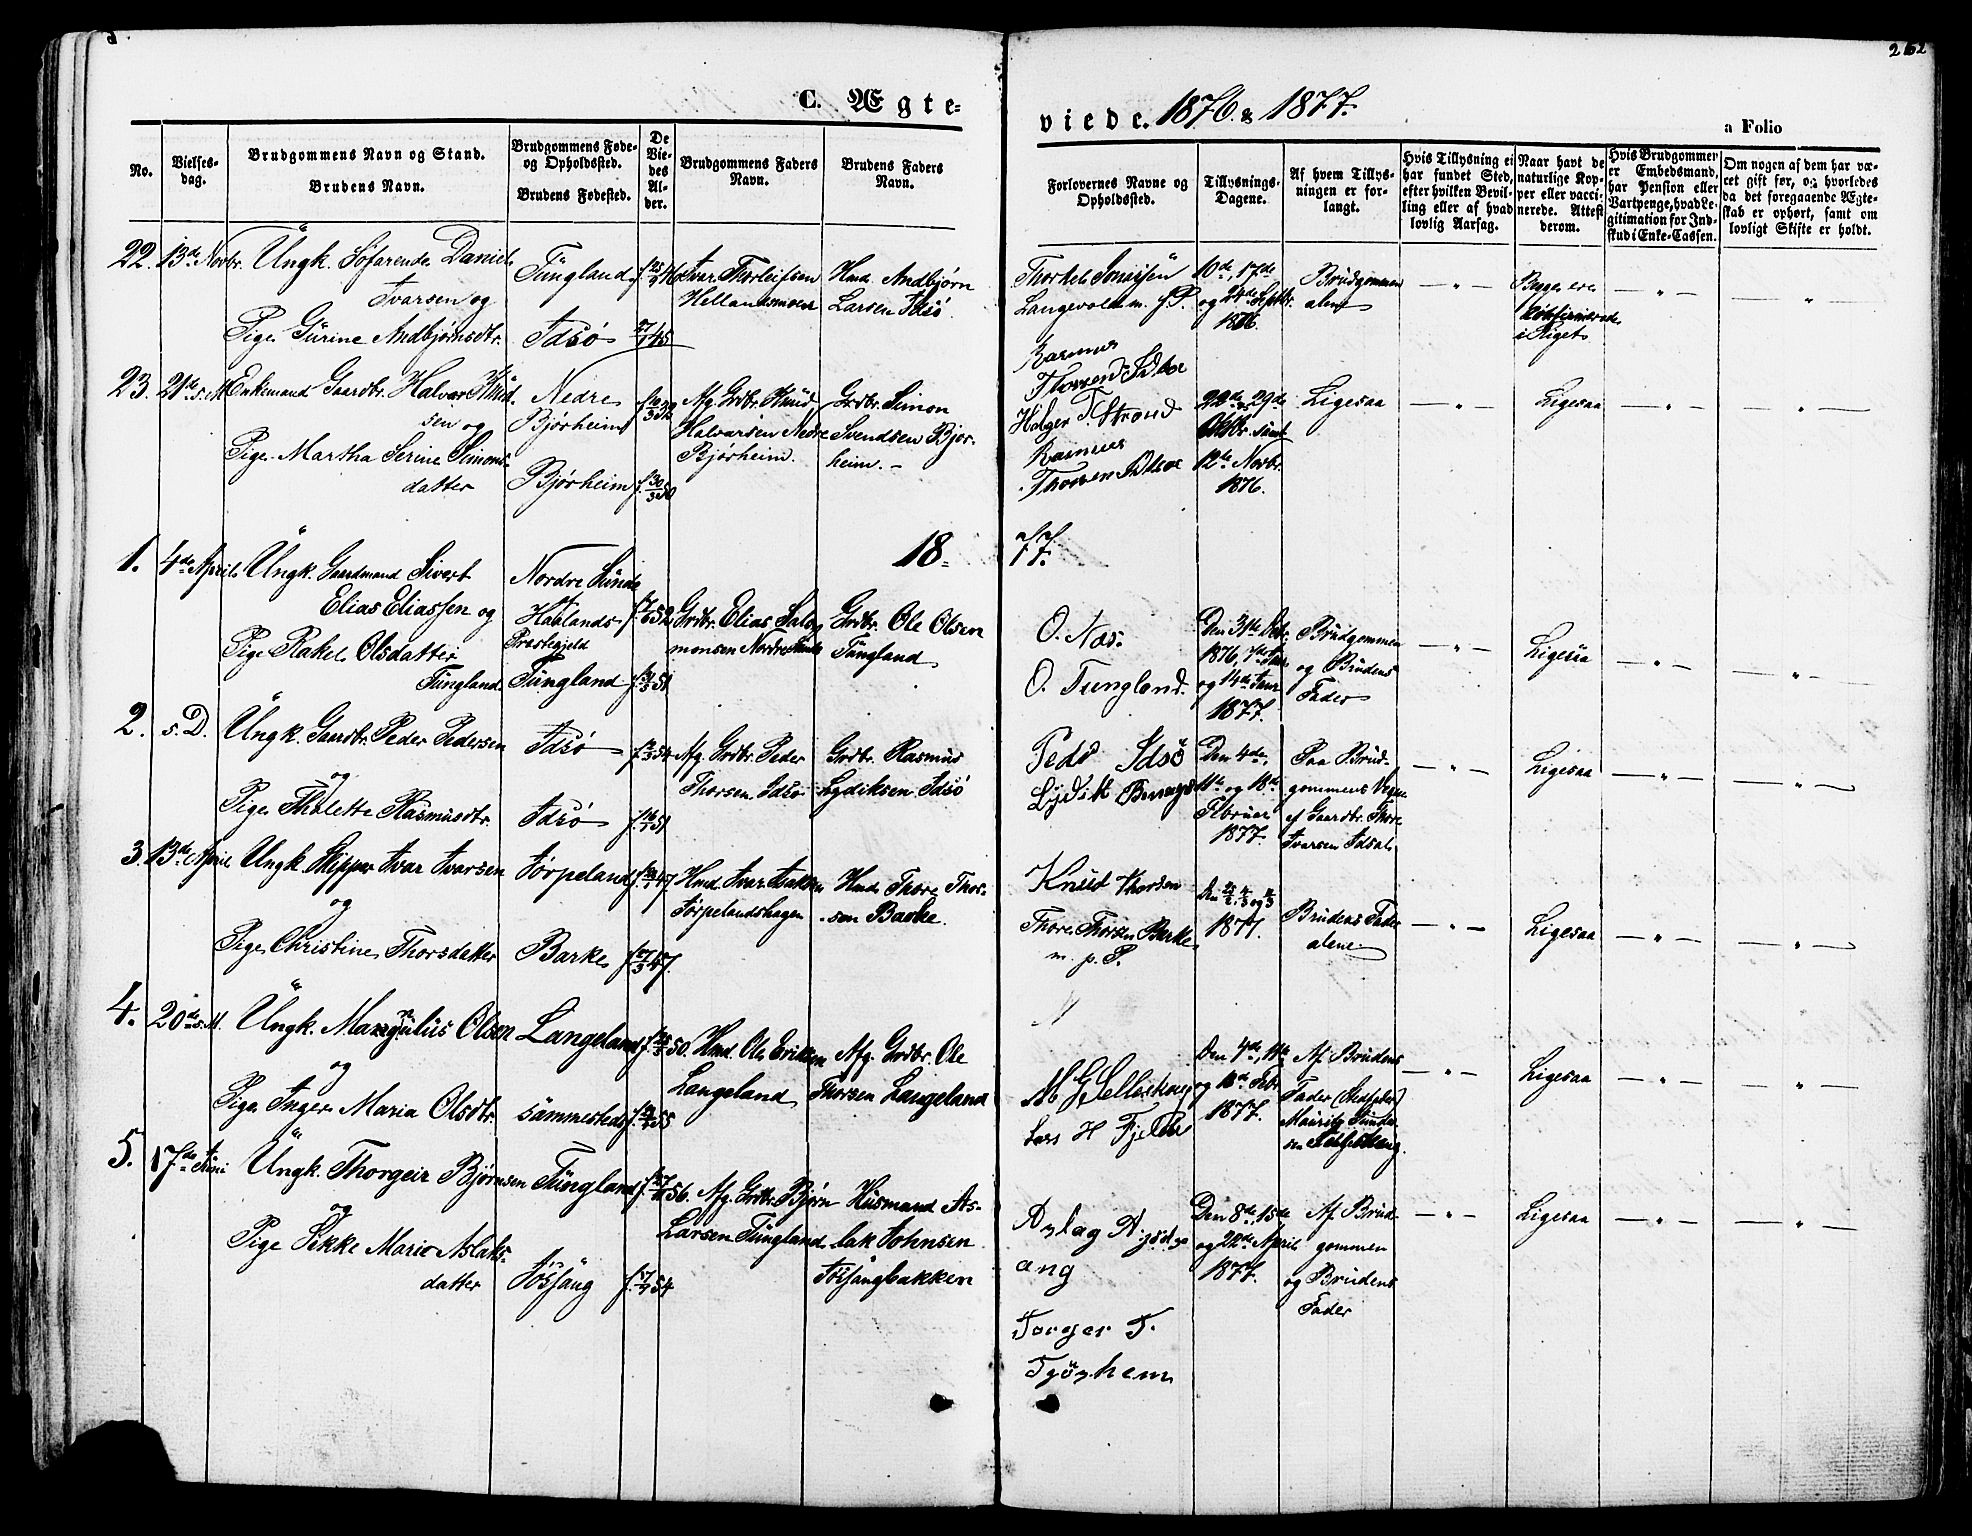 262
C. Ægte-
viede. 1876 & 1877.
a Folio
No.
Vielses-
dag.
Brudgommens Navn og Stand.
Brudens Navn.
Brudgommens Føde-
og Opholdssted.
Brudens Fødested.
De
Vie-
des
Al-
der.
Brudgommens Faders
Navn.
Brudens Faders
Navn.
Forlovernes Navne og
Opholdssted.
Tillysnings-
Dagene.
Af hvem Tillys-
ningen er for-
langt.
Hvis Tillysning ei
har fundet Sted,
efter hvilken Bevil-
ling eller af hvad
lovlig Aarsag.
Naar havt de
naturlige Kop-
per eller vacci-
nerede. Attest
derom.
Hvis Brudgommen
er Embedsmand,
har Pension eller
Vartpenge, hvad Le-
gitimation for Ind-
skud i Enke-Cassen.
Om nogen af dem har væ-
ret gift før, og hvorledes
da det foregaaende Ægte-
skab er ophørt, samt om
lovligt Skifte er holdt.
22. 13de Novbr. Ungk. Søfarende Daniel
Ivarsen og
Pige Gurine Andbjørnsdtr.
Tungland
Idsø
27/1 45
Ivar Thorleifsen
Hellandsmoen
Hmd. Andbjørn
Larsen Idsø
Thorkel
Langevold m. f. P.
10de, 17de
og 24de Septbr.
1876.
Brudgommen
alene
Begge ere
konfirmerede
i Riget
23. 21de s. M. Enkemand Gaardbr. Halvar Knud-
sen og
Pige Martha Serine Simons-
datter
Nedre
Bjørheim
Bjørheim
f. 30/3 50
Afg. Grdbr. Knud
Halvarsen Nedre
Bjørheim.
Grdbr. Simon
Svendsen Bjør-
heim. -
Rasmus
Thorsen Idsøe
Holger T. Strand
Rasmus
Thorsen Idsøe
22de og 29de
Oktbr. samt
12te Novbr.
1876.
Ligesaa
Ligesaa
18 77.
1. 4de April Ungk. Gaardmand Sivert
Elias Eliassen og
Pige Rakel Olsdatter
Tungland
Nordre Sunde
Haalands
Præstegjeld
Tungland
Grdbr. Elias Salo-
monsen Nordre Sunde
Grdbr. Ole Olsen
Tungland
O. Næs.
O. Tungland.
Den 31te Debr.
1876, 7de Janr.
og 14de Janr.
1877.
Brudgommen
og Brudens
Fader
Ligesaa
2. s. D. Ungk. Gaardbr. Peder Pedersen
og
Pige Thalette Rasmusdtr.
Idsø
Idsø
f. 16/1 51
Afg. Grdbr. Peder
Thorsen Idsø
Grdbr. Rasmus
Lydiksen Idsø
Peder Idsø
Lydik
Den 4de,
11te og 18de
Februar
1877.
Paa Brud-
gommens Vegne
af Gaardbr. Thore
Ivarsen Idsal
Ligesaa
3. 13de April Ungk. Skipper Ivar Ivarsen
og
Pige Christine Thorsdatter
Jørpeland
Barke
f. 27/3 47.
Hmd. Ivar Isaksen
Jørpelandshagen
Hmd. Thore Thor-
sen Barke.
Knud Thorsen
Thore Thorsen Barke
m. p. P.
1877.
Brudens Fader
alene.
Ligesaa
4. 20de s. M. Ungk. Mangulius Olsen
og
Pige Inger Maria Olsdtr.
Langeland
sammesteds
Hmd. Ole Eriksen
Langeland
Afg. Grdbr. Ole
Thorsen Langeland
M G Selleskog
Lars H Fjelde
Den 4de, 11te
og 18de Febr.
1877.
Af Brudens
Fader (Stedfader)
Ligesaa
5. 17de Juni Ungk. Thorgeir Bjørnsen
og
Pige Sikke Marie Aslaks-
datter
Tungland
Jøssang
f. 7/9 54
Afg. Grdbr. Bjørn
Larsen Tungland
Husmand As-
lak Johnsen
Jøssangbakken
Aslag
ang
Torger T.
Tjøshem
Den 8de, 15de
og 22de April
1877.
Af Brud-
gommen
og Brudens
Fader
Ligesaa